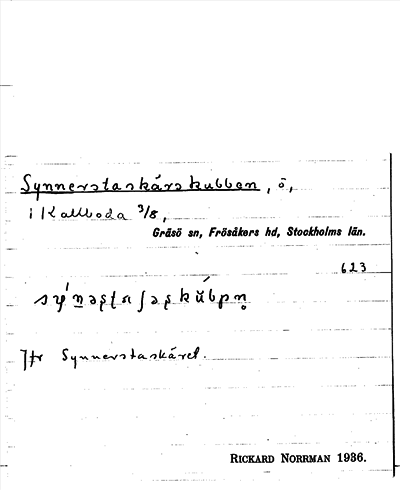 Synnerstaskärskubben, ö,
i Kallboda 3/8,
Gräsö sn, Frösåkers hd, Stockholms län.
623
Jfr Synnerstaskäret.
RICKARD NORRMAN 1936.